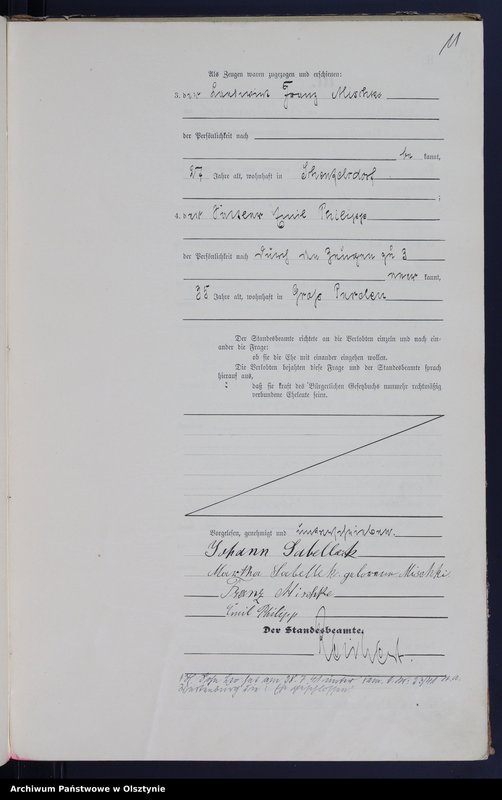 11
Als Zeugen waren zugezogen und erschienen:
3. der Landwirt Franz Mischke
der Persönlichkeit nach
be kannt,
27 Jahre alt, wohnhaft in
;
4. der Emil Philipp
der Persönlichkeit nach durch den Zeugen zu 3
kannt,
35 Jahre alt, wohnhaft in Groß Purden
Der Standesbeamte richtete an die Verlobten einzeln und nach ein-
ander die Frage:
ob sie die Ehe mit einander eingehen wollen.
Die Verlobten bejahten diese Frage und der Standesbeamte sprach
hierauf aus,
daß sie kraft des Bürgerlichen Gesetzbuchs nunmehr rechtmäßig
verbundene Eheleute seien.
Vorgelesen, genehmigt und unterschrieben.
Johann Sabellek
Martha Sabellek geborene Mischke
Franz Mischke
Emil Philipp
Der Standesbeamte.
Archiwum Państwowe w Olsztynie